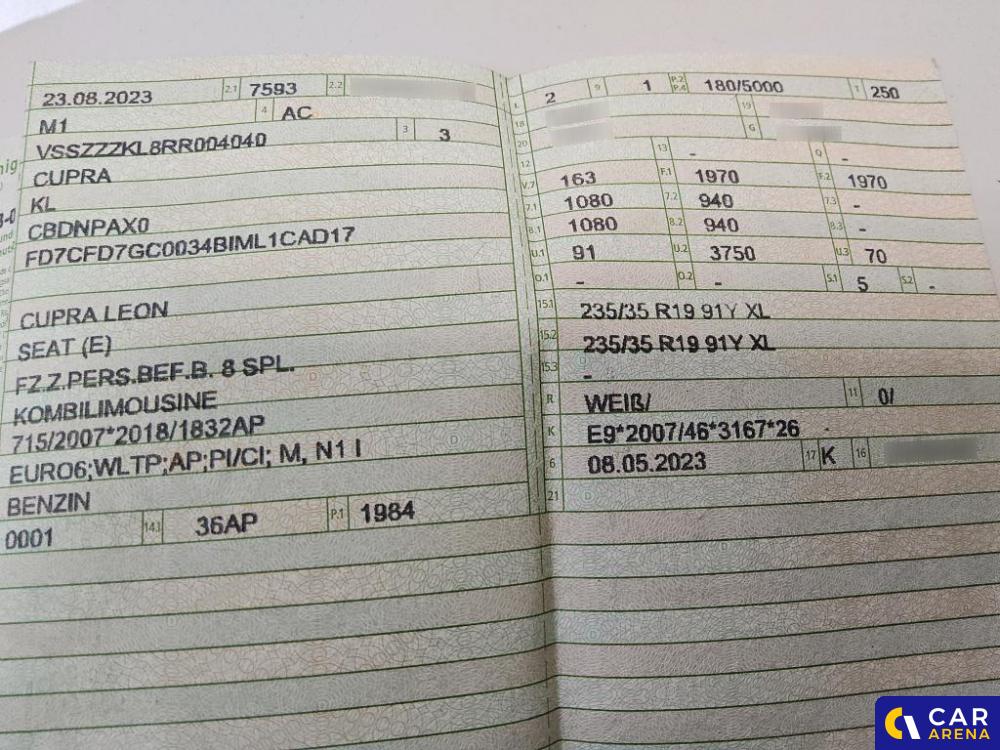 23.08.2023 2.1 7593 2.2
M1 4 AC
VSSZZZKL8RR004040 3 3
CUPRA
KL
CBDNPAX0
FD7CFD7GC0034BIML1CAD17
CUPRA LEON
SEAT (E)
FZ.Z.PERS.BEF.B. 8 SPL.
KOMBILIMOUSINE
715/2007*2018/1832AP
EURO6;WLTP;AP;PI/CI; M, N1 I
BENZIN
0001 14.1 36AP P.1 1984
L 2 9 1 P.2 P.4 180/5000 T 250
18 19
20 G
12 13 - Q -
V.7 163 F.1 1970 F.2 1970
7.1 1080 7.2 940 7.3 -
8.1 1080 8.2 940 8.3 -
U.1 91 U.2 3750 U.3 70
O.1 - O.2 - S.1 5 S.2 -
15.1 235/35 R19 91Y XL
15.2 235/35 R19 91Y XL
15.3 -
R WEIß/ 11 0/
K E9*2007/46*3167*26 -
6 08.05.2023 17 K 16
21
CAR
ARENA